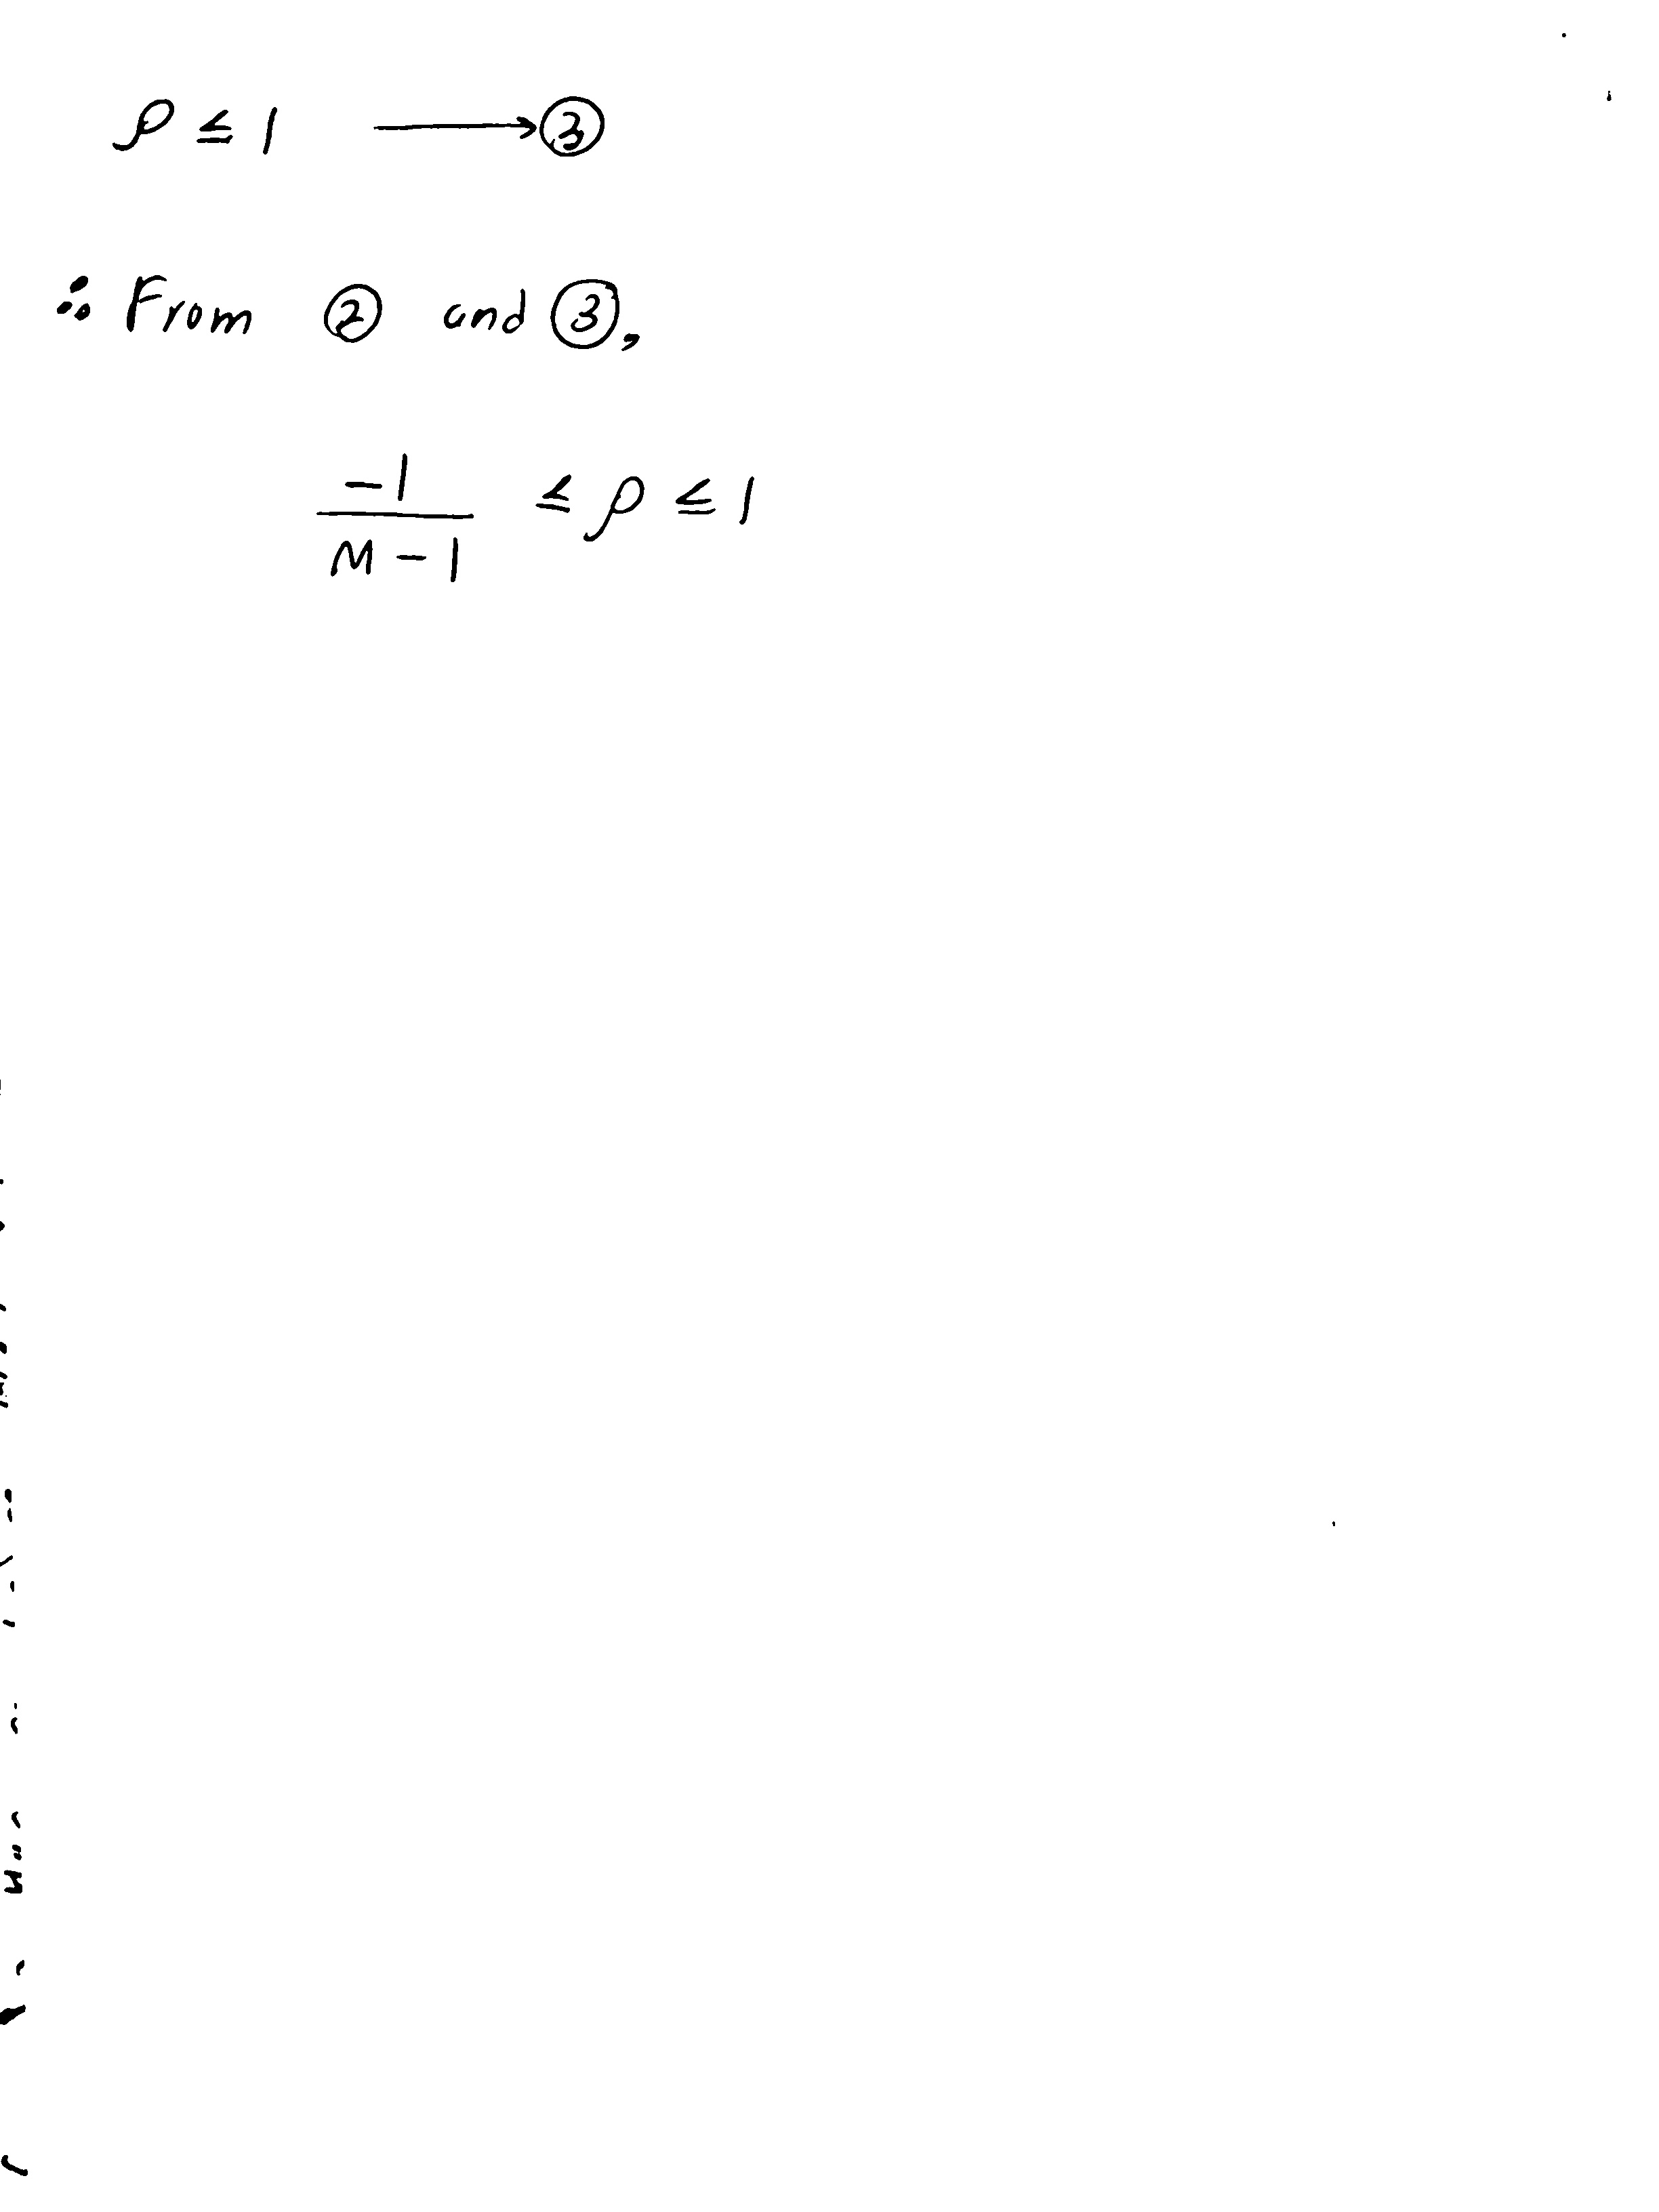 ρ ≤ 1 ⟶ ③
∴ From ② and ③,
-1/(M-1) ≤ ρ ≤ 1